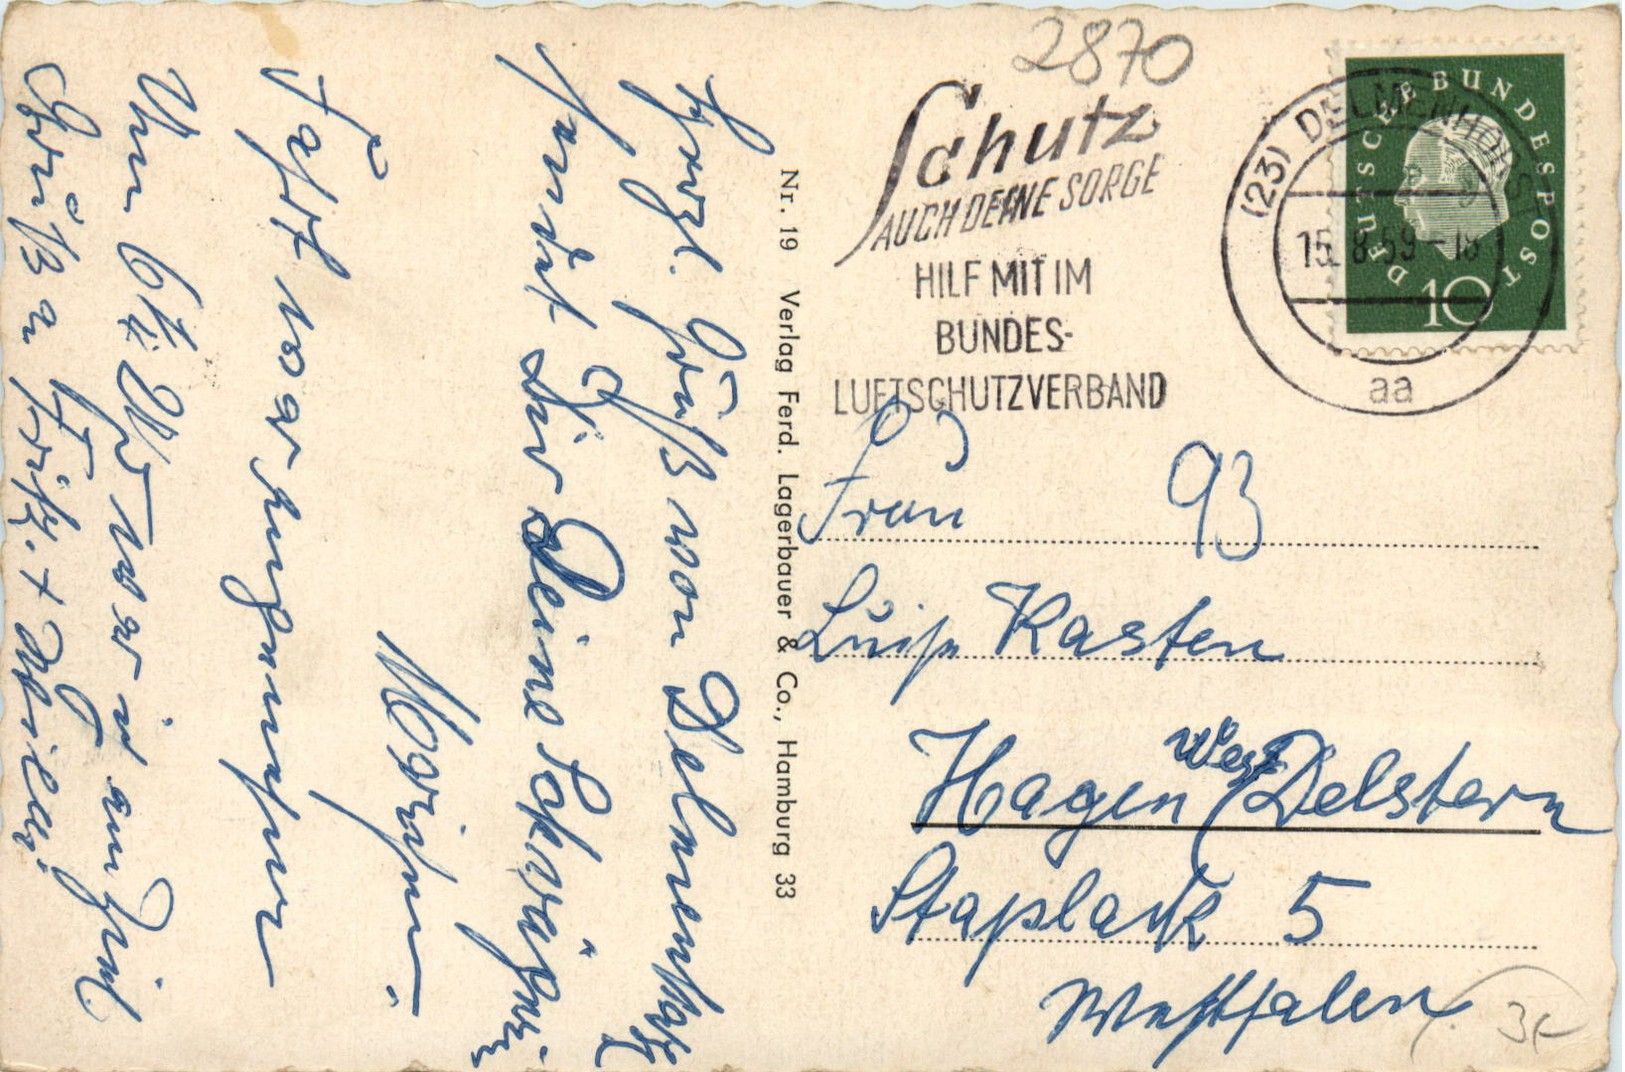 2870
Schutz
AUCH DEINE SORGE
HILF MIT IM
BUNDES-
LUFTSCHUTZVERBAND
(23) DELMENHORST
15. 8. 59 - 18
aa
DEUTSCHE BUNDESPOST
10
Herzl. Grüß von Delmenhorst
sendet Dir Deine Schwägerin
Fahrt war
Um 6 ½ Uhr war in am Ziel
Grüße an Fritz. +
Nr. 19 Verlag Ferd. Lagerbauer & Co., Hamburg 33
Frau 93
Luise Kasten
Hagen West Delstern
Staplack 5
Westfalen